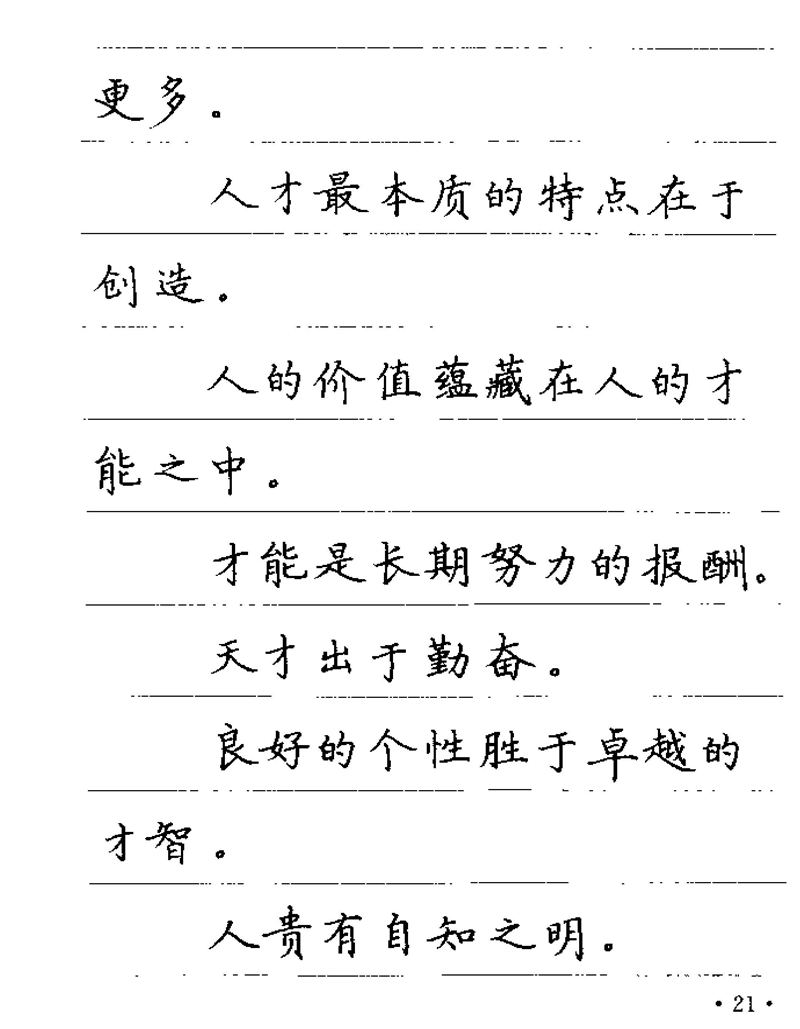 更多。
人才最本质的特点在于
创造。
人的价值蕴藏在人的才
能之中。
才能是长期努力的报酬。
天才出于勤奋。
良好的个性胜于卓越的
才智。
人贵有自知之明。
• 21 •